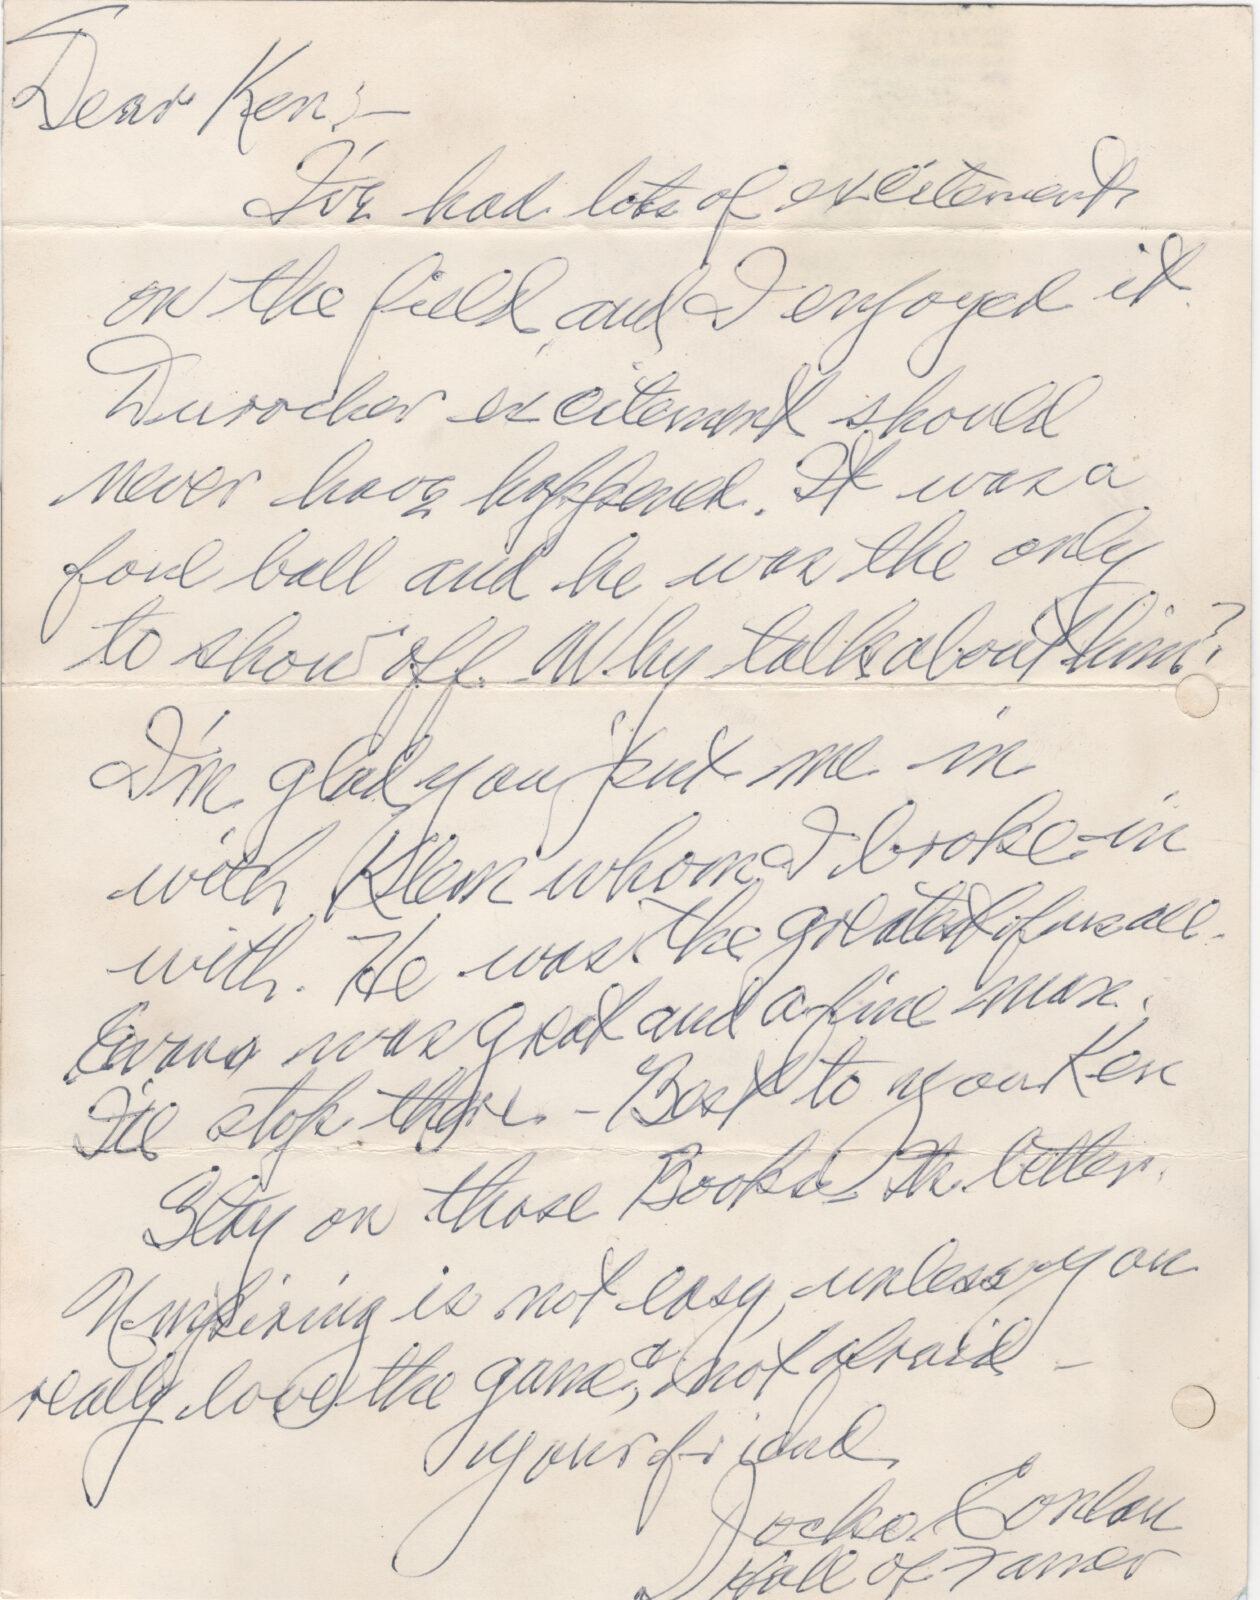 Dear Ken:-
I've had lots of excitement
on the field, and I enjoyed it.
Durocher excitement should
never have happened. It was a
foul ball and he was the only
to show off. Why talk about him?
I'm glad you put me in
with Klem whom I broke-in
with. He was the greatest of us all.
Evans was great and a fine man.
I'll stop there. - Best to you Ken
Stay on those Books - the better.
Umpiring is not easy, unless you
really love the game, & not afraid -
your friend
Jocko Conlan
Hall of Famer